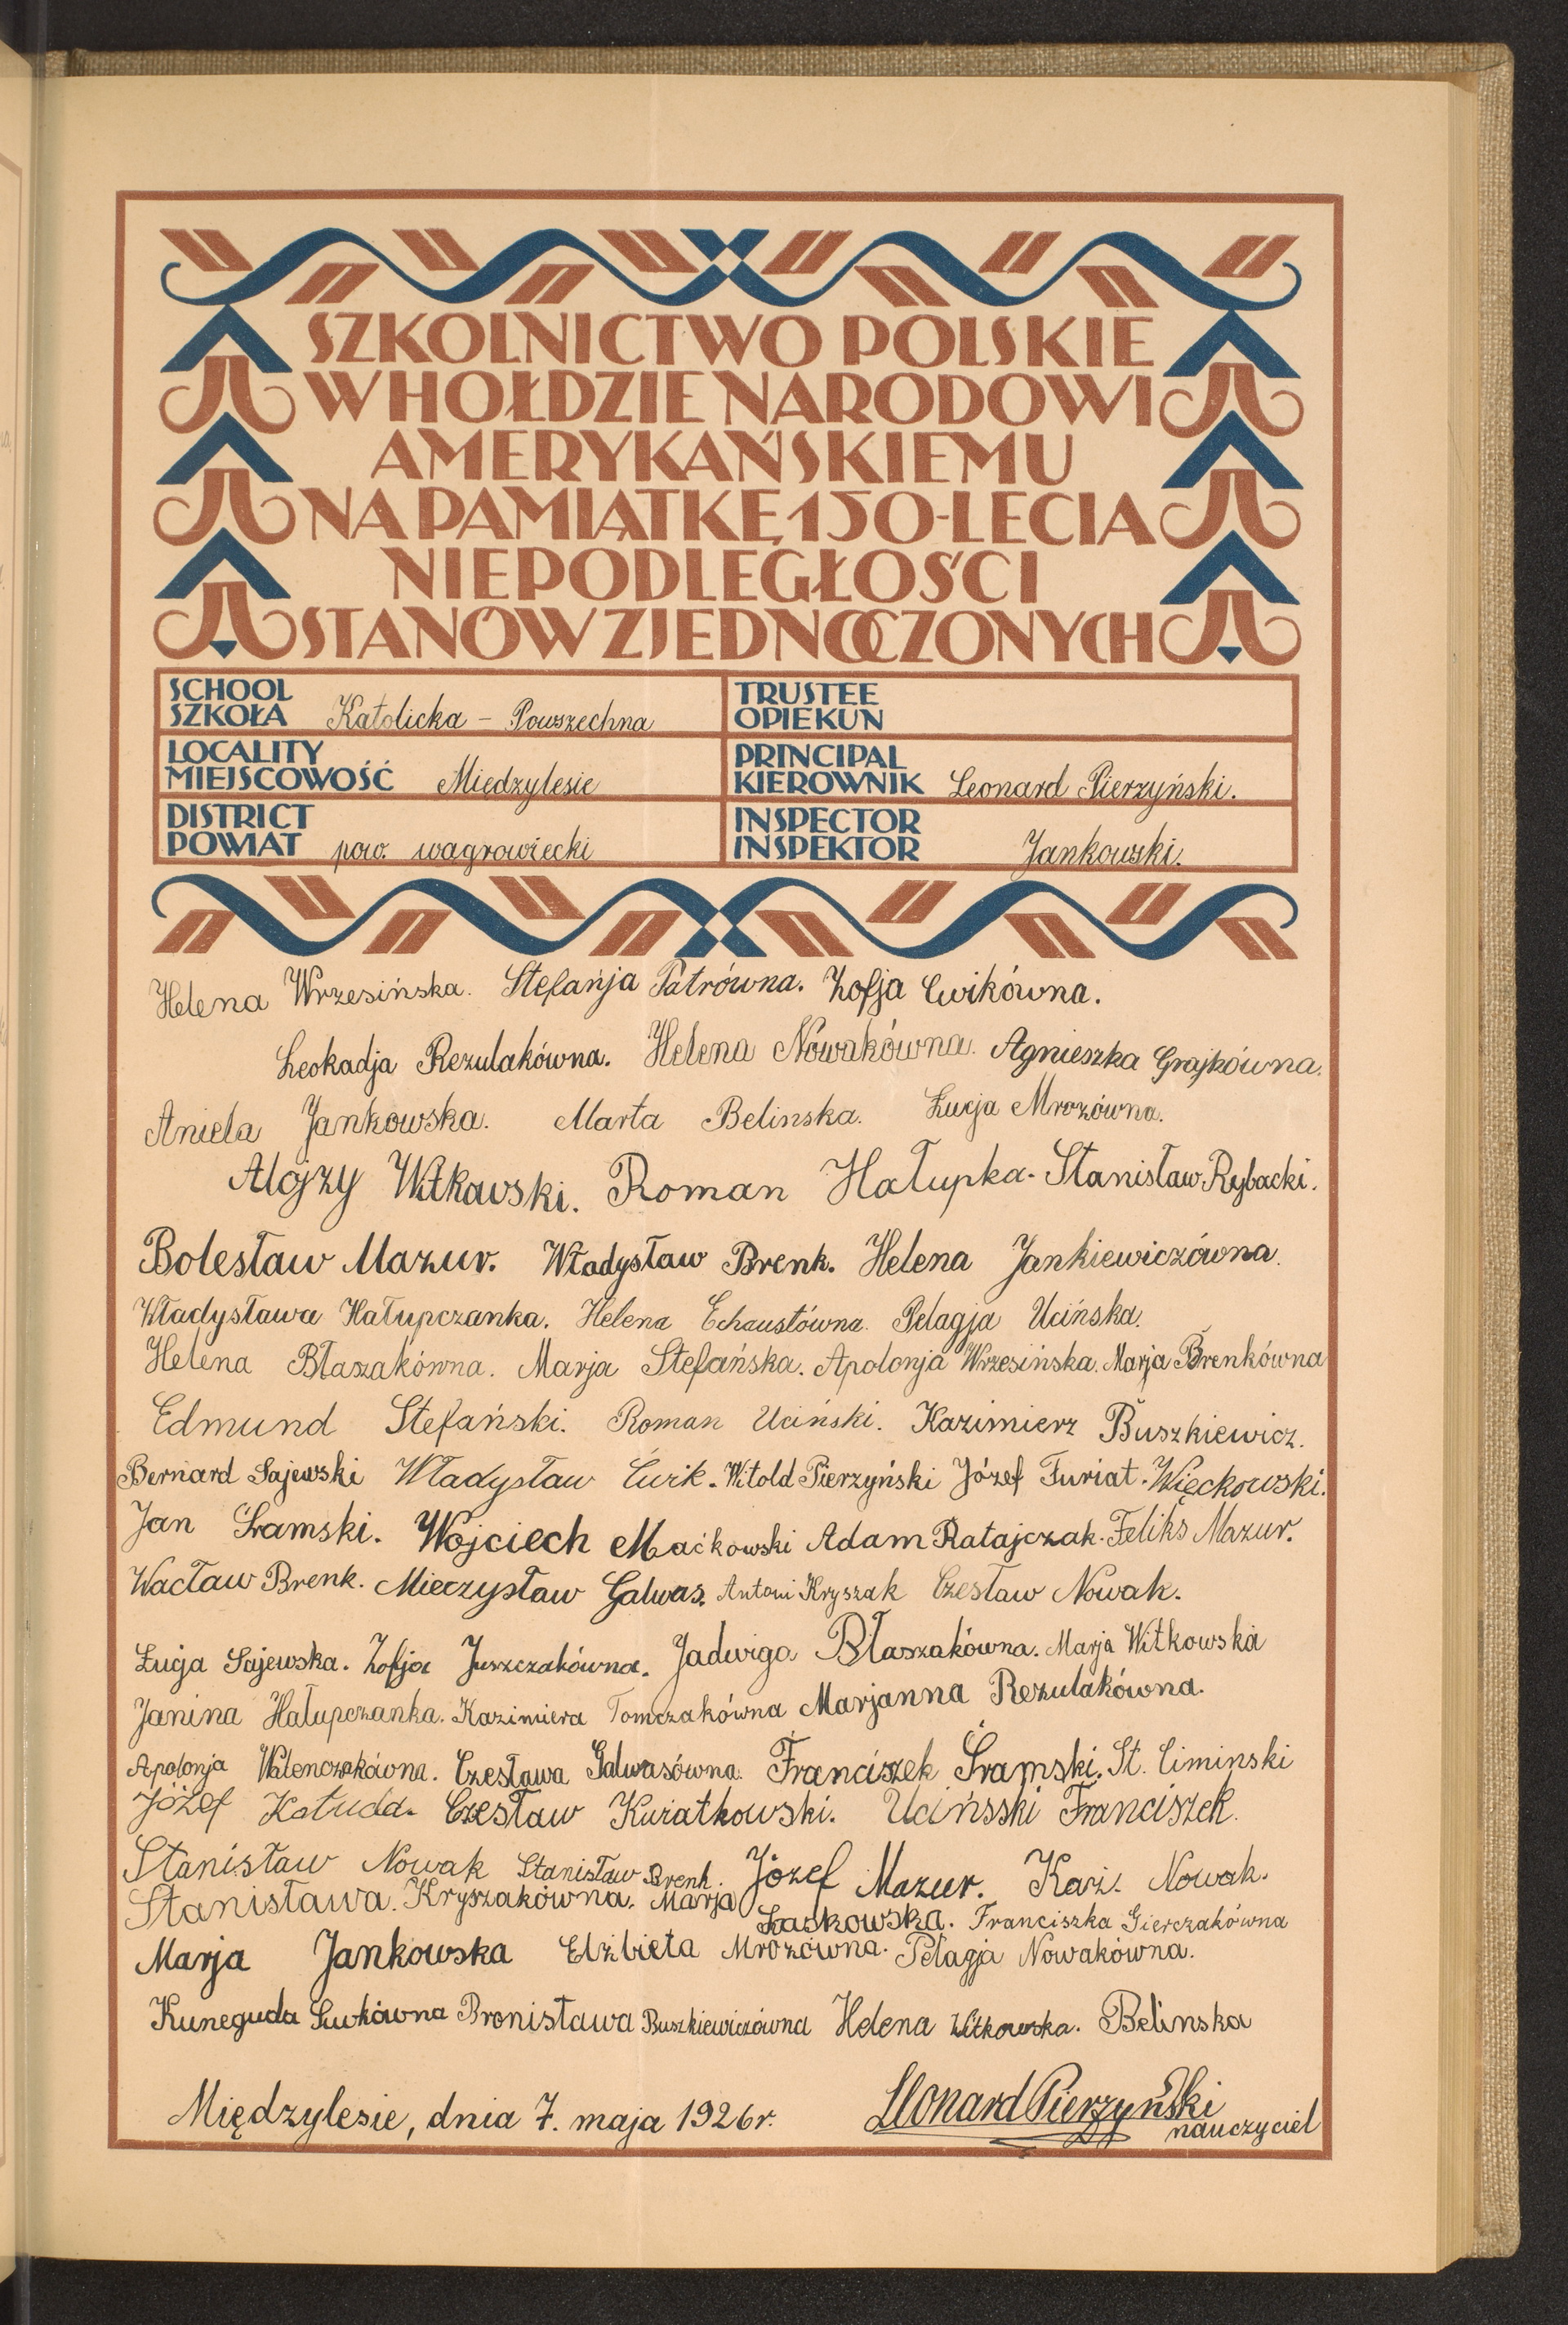 SZKOLNICTWO POLSKIE
W HOŁDZIE NARODOWI
AMERYKAŃSKIEMU
NA PAMIĄTKĘ 150-LECIA
NIEPODLEGŁOŚCI
STANÓW ZJEDNOCZONYCH
SCHOOL
SZKOŁA Katolicka – Powszechna
TRUSTEE
OPIEKUN
LOCALITY
MIEJSCOWOŚĆ Miedzylesie
PRINCIPAL
KIEROWNIK Leonard Pierzyński.
DISTRICT
POWIAT pow. wagrowiecki
INSPECTOR
INSPEKTOR Jankowski.
Helena Wrzesińska. Stefańja Patrówna. Zofja Cwikówna.
Leokadja Rezulakówna. Helena Nowakówna. Agnieszka Grajkówna.
Aniela Jankowska. Marta Belinska. Łucja Mrozówna.
Alojzy Witkowski. Roman Hałupka. Stanisław Rybacki.
Bolesław Mazur. Władysław Brenk. Helena Jankiewiczówna.
Władysława Hałupczanka. Helena Echaustówna. Pelagja Ucińska.
Helena Błaszakówna. Marja Stefańska. Apolonja Wrzesińska. Marja Brenkówna
Edmund Stefański. Roman Uciński. Kazimierz Buszkiewicz.
Bernard Sajewski Władysław Ćwik. Witold Pierzyński Józef Furiat. Więckowski.
Jan Śramski. Wojciech Maćkowski Adam Ratajczak. Feliks Mazur.
Wacław Brenk. Mieczysław Galwas. Antoni Kryszak Czesław Nowak.
Łucja Sajewska. Zofja Juszczakówna. Jadwiga Błaszakówna. Marja Witkowska
Janina Hałupczanka. Kazimiera Tomczakówna Marjanna Rezulakówna.
Apolonja Walenczakówna. Czesława Galwasówna. Franciszek Śramski. St. Ciminski
Józef Kałuda. Czesław Kwiatkowski. Ucińsski Franciszek.
Stanisław Nowak Stanisław Brenk. Józef Mazur. Kaź. Nowak.
Stanisława. Kryszakówna. Marja Laskowska. Franciszka Gierczakówna
Marja Jankowska Elżbieta Mrozówna. Pelagja Nowakówna.
Kuneguda Bronisława Buszkiewiczówna Helena Witkowska. Belinska
Międzylesie, dnia 7. maja 1926 r. Leonard Pierzyński
nauczyciel